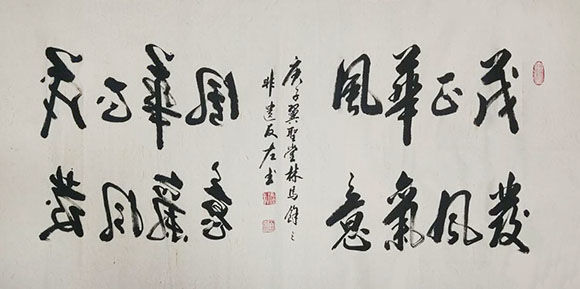 風華正茂
意氣風發
庚子翼聖堂林馬
非遺反左書
風華正茂
意氣風發